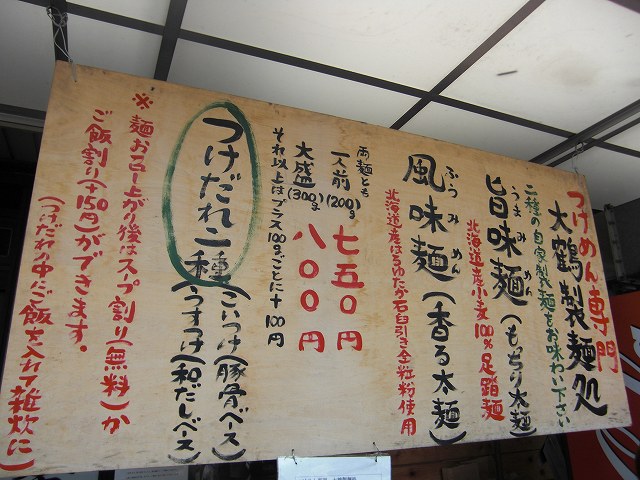 つけめん専門
大鶴製麺処
二種の自家製麺をお味わい下さい
旨味麺(もっちり太麺)
うまみめん
北海道産小麦100%足踏麺
風味麺(香る太麺)
ふうみめん
北海道産はるゆたか石臼引き全粒粉使用
両麺とも
一人前(200g)七五〇円
大盛(300g)八〇〇円
それ以上はプラス100gごとに+100円
つけだれ二種
こいつけ(豚骨ベース)
うすつけ(和だしベース)
※麺お召し上がり後はスープ割り(無料)か
ご飯割り(+150円)ができます。
(つけだれの中にご飯を入れて雑炊に)